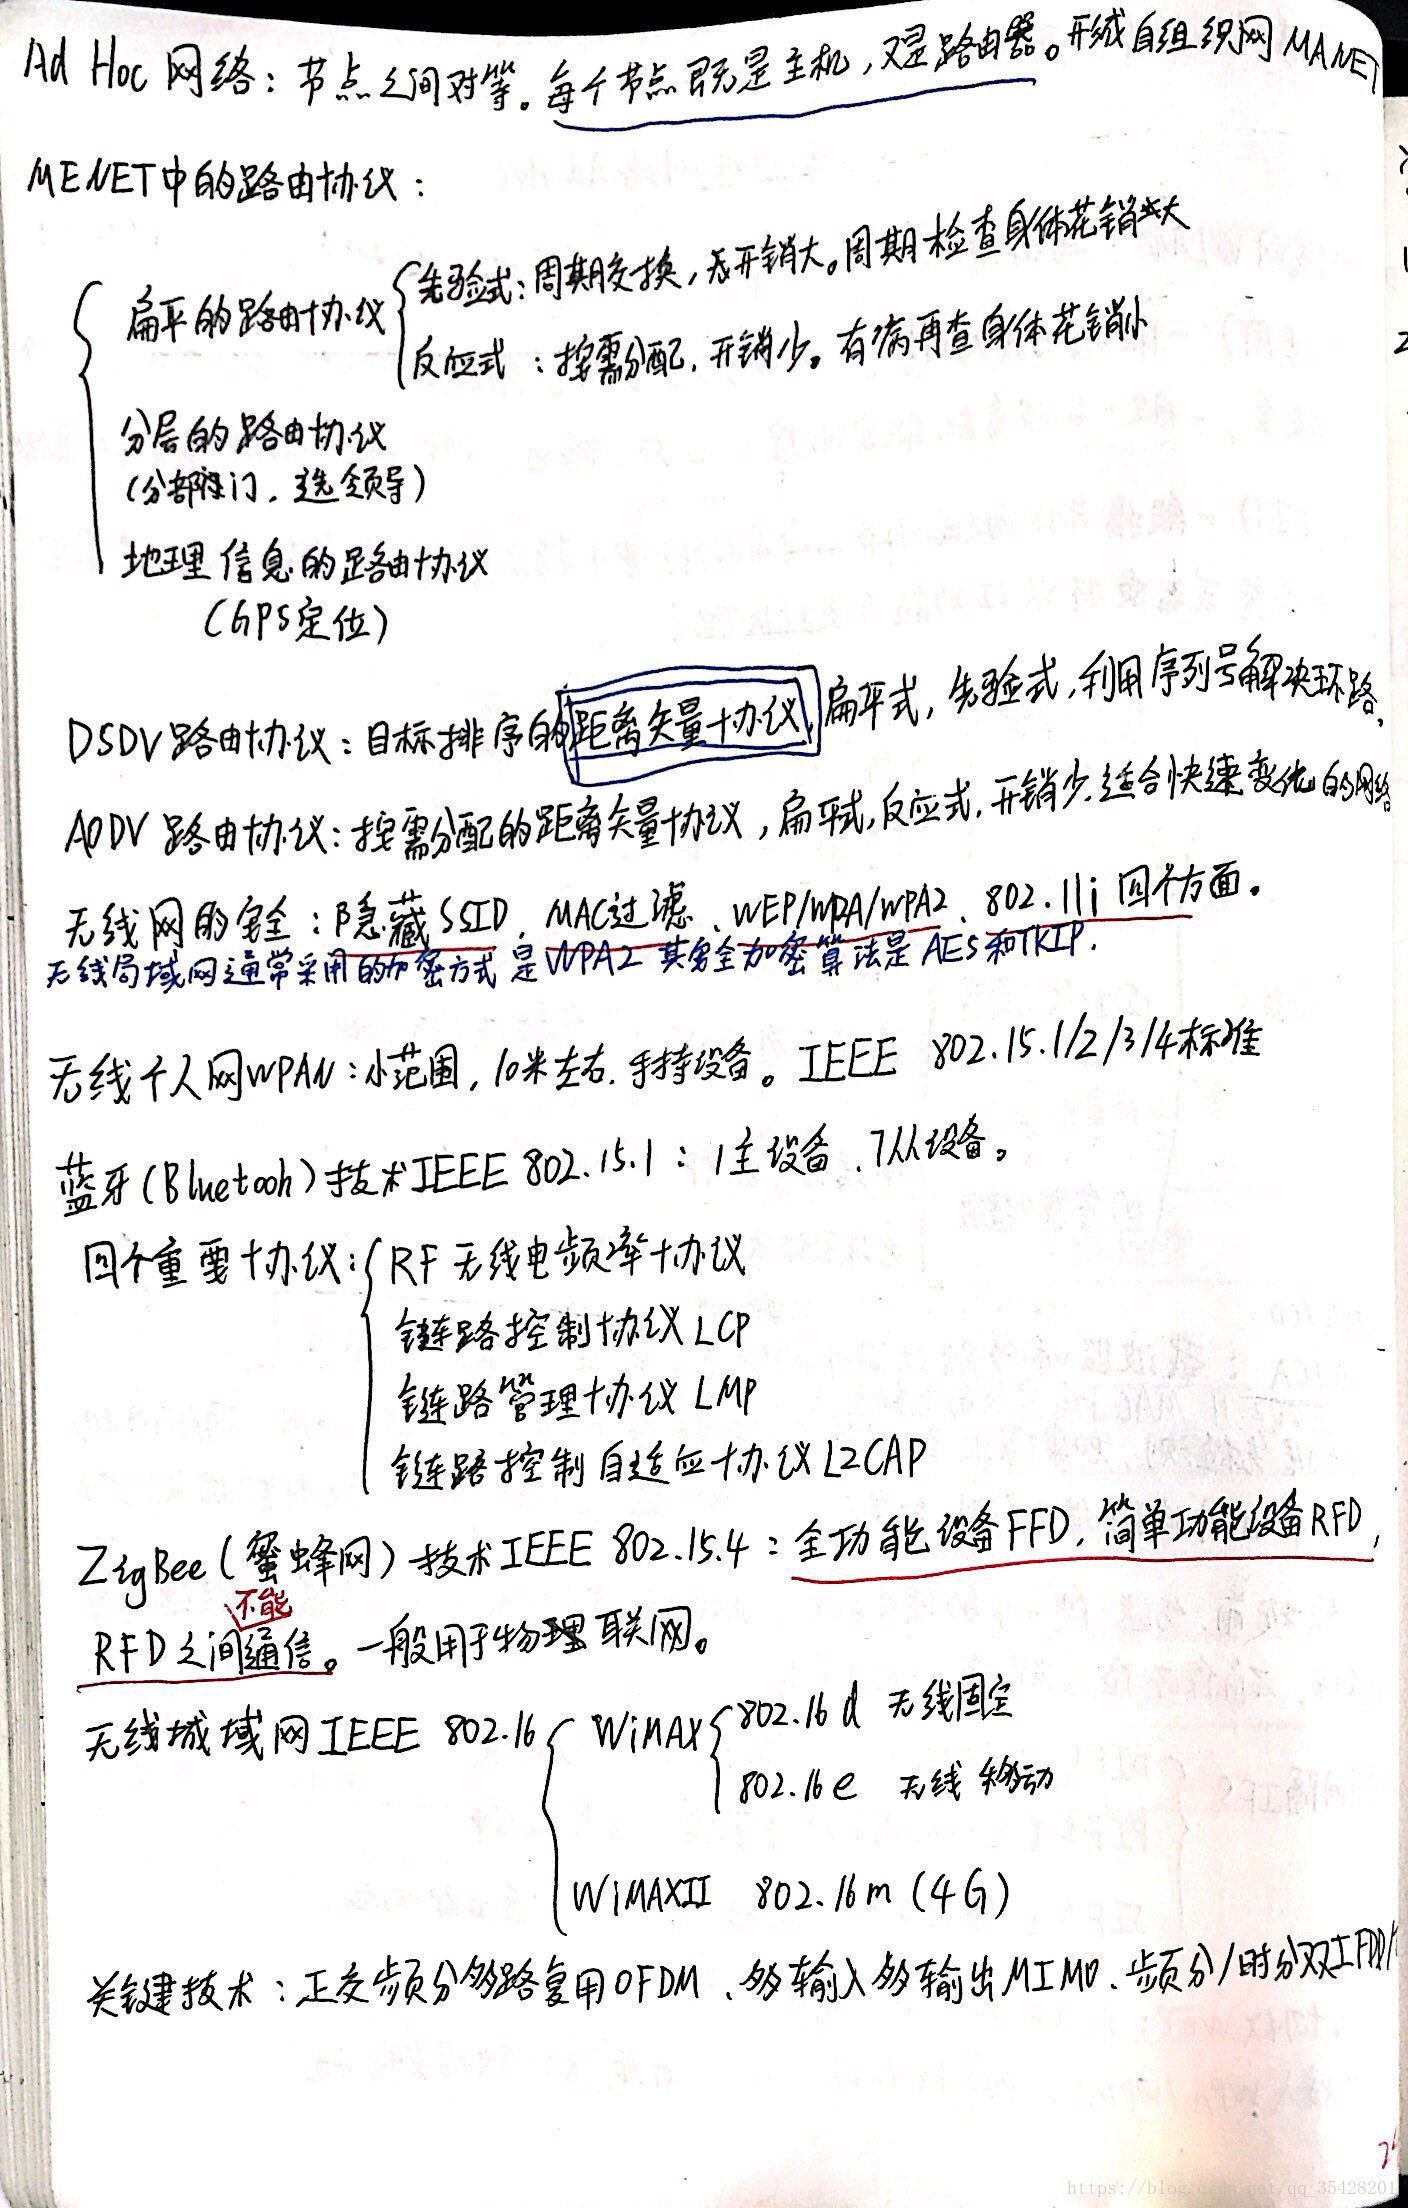 Ad Hoc 网络：节点之间对等。每个节点既是主机，又是路由器。形成自组织网MANET
MENET中的路由协议：
扁平的路由协议
先验式：周期交换，开销大。周期检查身体花销大
反应式：按需分配，开销少。有病再查身体花销小
分层的路由协议
(分部门，选领导)
地理信息的路由协议
(GPS定位)
DSDV路由协议：目标排序的距离矢量协议，扁平式，先验式，利用序列号解决环路，
AODV路由协议：按需分配的距离矢量协议，扁平式，反应式，开销少，适合快速变化的网络
无线网的安全：隐藏SSID、MAC过滤、WEP/WPA/WPA2、802.11i 四个方面。
无线局域网通常采用的加密方式是WPA2 其安全加密算法是AES和TKIP.
无线个人网WPAN：小范围，10米左右，手持设备。IEEE 802.15.1/2/3/4标准
蓝牙(Bluetooh)技术IEEE 802.15.1：1主设备、7从设备。
四个重要协议：
RF 无线电频率协议
链路控制协议 LCP
链路管理协议 LMP
链路控制自适应协议 L2CAP
ZigBee(蜜蜂网)技术IEEE 802.15.4：全功能设备FFD，简单功能设备RFD，
RFD之间不能通信。一般用于物理联网。
无线城域网IEEE 802.16
WiMAX
802.16d 无线固定
802.16e 无线移动
WiMAXII 802.16m (4G)
关键技术：正交频分多路复用OFDM、多输入多输出MIMO、频分/时分双工FDD/
https://blog.csdn.net/qq_35428201